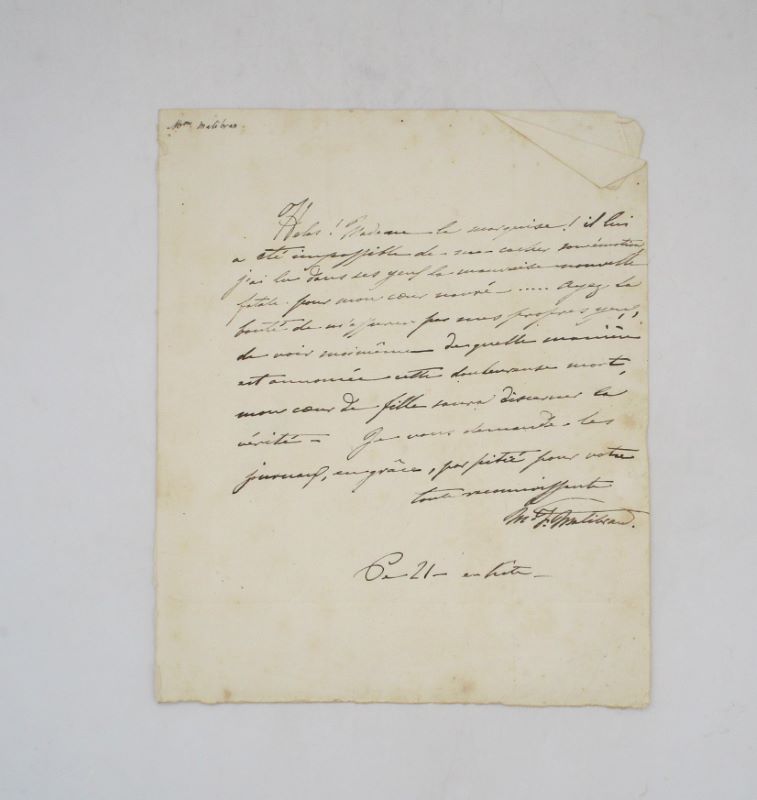 Mme Malibran
Hélas! Madame la marquise! il lui
a été impossible de me cacher son émotion
j'ai lu dans ses yeux la mauvaise nouvelle
fatale pour mon cœur navré ..... Ayez la
bonté de m'assurer par mes propres yeux,
de voir moimême de quelle manière
est annoncée cette douloureuse mort,
mon cœur de fille saura discerner la
vérité – Je vous demande les
journaux, en grâce, par pitié pour votre
toute reconnoissante
M. F. Malibran.
Ce 21 – en hâte –